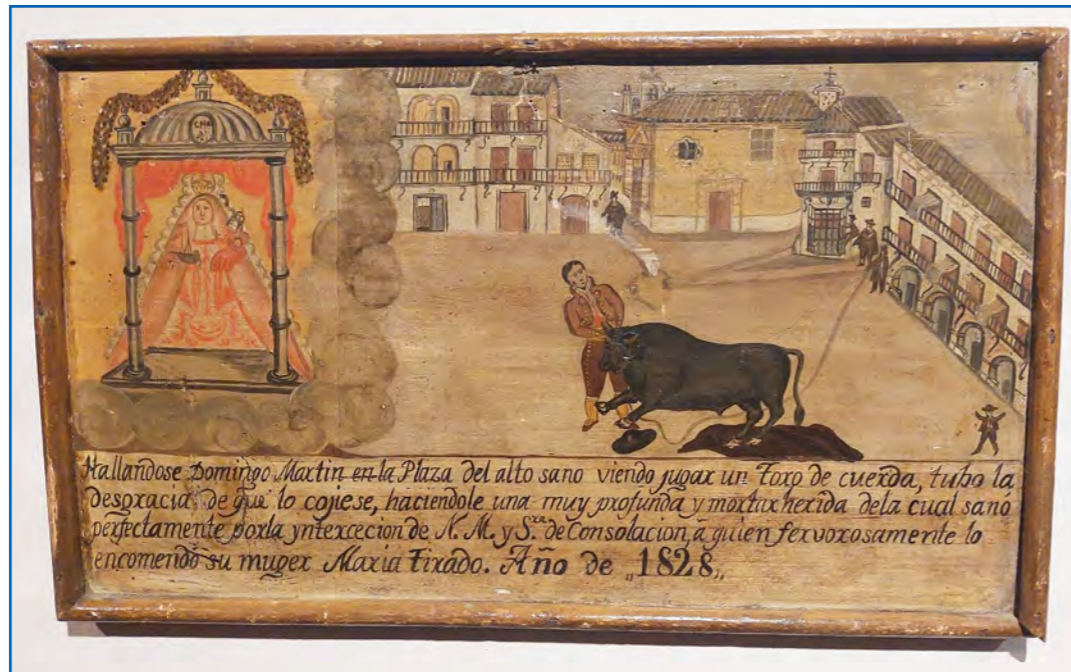 Hallandose Domingo Martin en la Plaza del alto sano viendo jugar un toro de cuerda, tubo la
desgracia, de que lo cojiese, haciendole una muy profunda y mortar herida dela cual sanó
perfectamente por la yntercecion de N. M. y Sra. de Consolacion, á quien fervorosamente lo
encomendó su muger Maria tirado. Año de „1828„